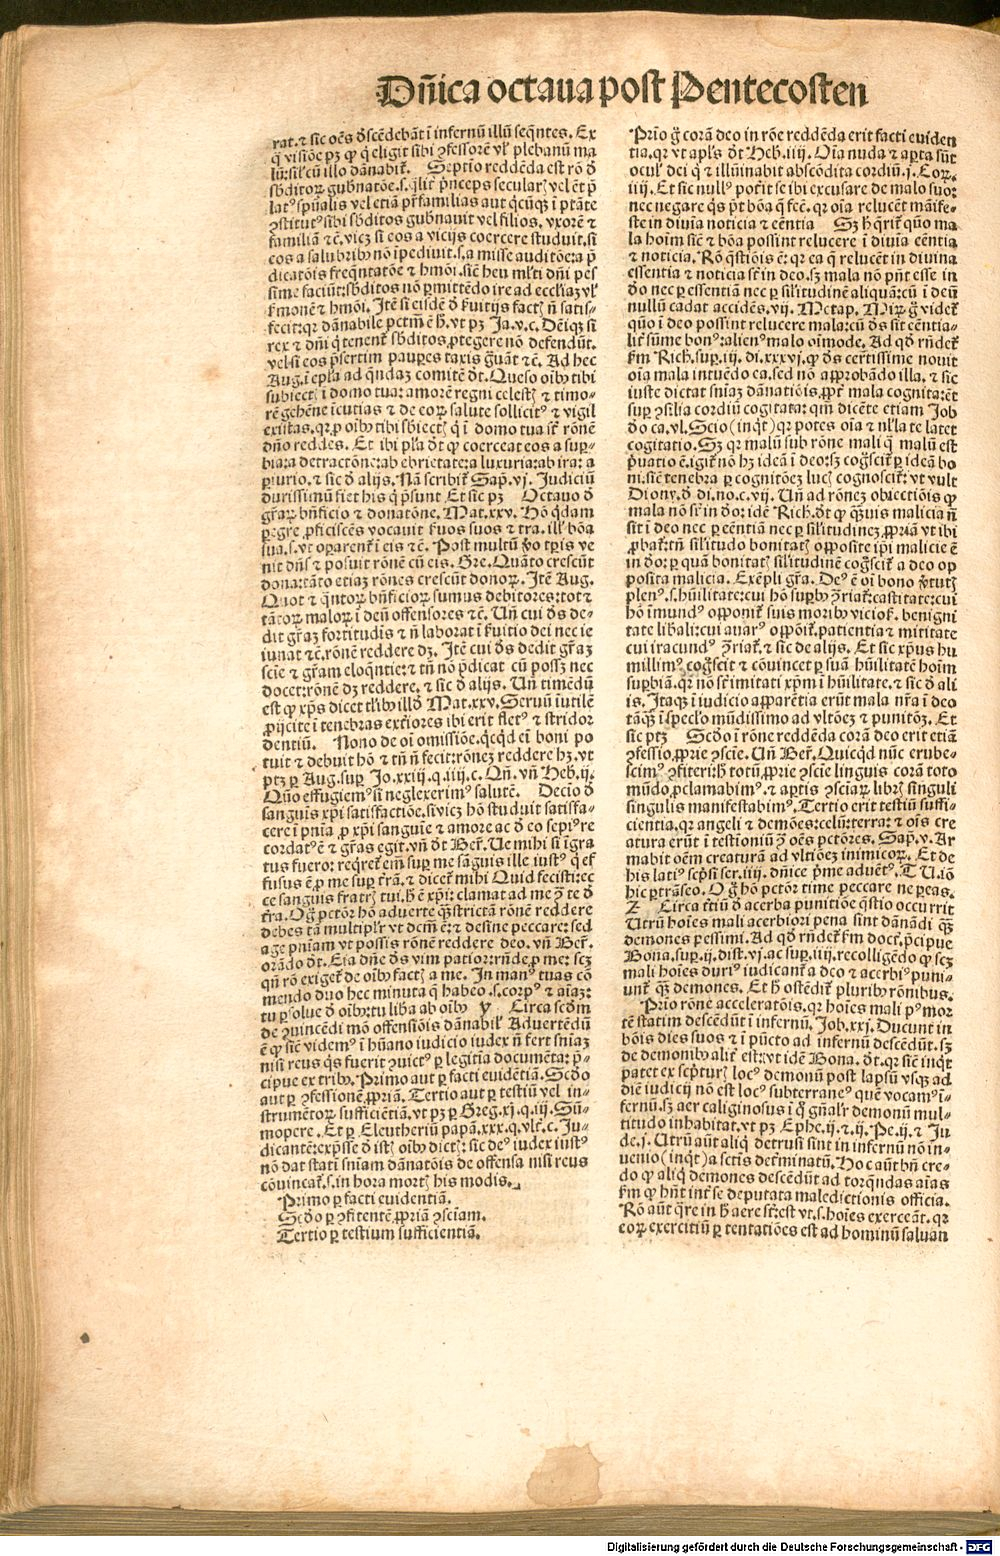 Dñica octaua post Pentecosten
rat. ⁊ sic oēs dscēdebāt ī infernū illū seq̄ntes. Ex
q̄ visiōe pꝫ ꝙ q̄ eligit sibi ꝯfessorē vl̓ plebanū ma
lū: sil̓ cū illo dānabit᷑. Septīo reddēda est rō d̄
sb̄ditoꝝ gubnatōe. s. q̄lit᷑ p̄nceps seculariꝫ vel ēt p̄
latꝰ spūalis vel etiā pr̄familias aut q̄cūqꝫ ī ptāte
ꝯstitutꝰ sibi sb̄ditos gubnauit vel filios, vxorē ⁊
familiā ⁊ē. vicꝫ si eos a vicijs coercere studuit. si
eos a salubribꝰ nō īpediuit. s. a misse auditōe: a p̄
dicatōis freq̄ntatōe ⁊ hmōi. sic̄ heu ml̓ti dn̄i pes
sime faciūt: sb̄ditos nō ꝑmittēdo ire ad eccl̓iaꝫ vl̓
ẜmonē ⁊ hmōi. Itē si eisdē d̄ ẜuitijs factꝭ nō satis-
fecit: qꝛ dānabile pctm̄ ē h̄. vt pꝫ Ja. v. c. Dēiqꝫ si
rex ⁊ dn̄i q̄ tenent᷑ sb̄ditos ꝓtegere nō defendūt.
vel si eos p̄sertim paupes taxis gͣuāt ⁊ē. Ad hec
Aug. ī epl̓a ad q̄ndaꝫ comitē dt̄. Queso oībꝰ tibi
subiectꝭ ī domo tua: amorē regni celestꝭ ⁊ timo-
rē gehēne īcutias ⁊ de eoꝝ salute sollicitꝰ ⁊ vigil
existas. qꝛ ꝓ oībꝰ tibi sbiectꝭ q̄ ī domo tua st̄ rōnē
dn̄o reddes. Et ibi pl̓a dt̄ ꝙ coerceat eos a suꝑ-
bia: a detractōne: ab ebrietate: a luxuria: ab ira: a
ꝑiurio. ⁊ sic d̄ alijs. Nā scribit᷑ Sap. vj. Judiciū
durissimū fiet his q̄ p̄sunt Et sic pꝫ Octauo d̄
gr̄aꝝ bn̄ficio ⁊ donatōne. Mat. xxv. Hō q̄dam
ꝑegre ꝓficiscēs vocauit ẜuos suos ⁊ tra. ill̓ bōa
sua. s. vt oꝑarent᷑ ī eis ⁊ē. Post multū ꝟo tꝑis ve
nit dn̄s ⁊ posuit rōnē cū eis. Gre. Quāto crescūt
dona: tāto etiaꝫ rōnes crescūt donoꝝ. Itē Aug.
Quot ⁊ q̄ntoꝝ bn̄ficioꝝ sumus debitores: tot ⁊
tātoꝝ maloꝝ ī deū offensores ⁊ē. Un̄ cui dꝰ de-
dit gr̄aꝫ fortitudis ⁊ n̄ laborat ī ẜuitio dei nec ie
iunat ⁊ē. rōnē reddere dꝫ. Itē cui dꝰ dedit gr̄aꝫ
scīe ⁊ gr̄am eloq̄ntie: ⁊ tn̄ nō p̄dicat cū possꝫ nec
docet: rōnē dꝫ reddere. ⁊ sic d̄ alijs. Un̄ timēdū
est qꝛ xp̄s dicet tl̓ibꝰ illd̓ Mat. xxv. Seruū iutilē
ꝓijcite ī tenebras exteriores ibi erit fletꝰ ⁊ stridor
dentiū. Nono de oī omissiōe. qꝫqd eī boni po
tuit ⁊ debuit hō ⁊ tn̄ n̄ fecit: rōneꝫ reddere hꝫ. vt
ptꝫ ꝑ Aug. suꝑ Jo. xxij. q. iiij. c. Qn̄. vn̄ Heb. ij.
Quō effugiemꝰ si neglexerimꝰ salutē. Decīo d̄
sanguis xp̄i satisfactiōe. si vicꝫ hō studuit satisfa-
cere ī pn̄ia ꝓ xp̄i sanguīe ⁊ amore ac d̄ eo sepiꝰ re
cordatꝰ ē ⁊ gr̄as egit. vn̄ dt̄ Ber̄. Ue mihi si īgra
tus fuero: reqret᷑ em̄ suꝑ me sāguis ille iustꝰ q̄ ef
fusus ē ꝓ me suꝑ tr̄ā. ⁊ dicet᷑ mihi Quid fecisti: ec
ce sanguis fratrꝭ tui. h̄ ē xp̄i: clamat ad me ꝯ te d̄
tr̄a. O gͦ pctōr hō aduerte q̄ꝫ strictā rōnē reddere
debes tā multipl̓r vt dcm̄ ē: ⁊ desine peccare: sed
age pn̄iam vt possis rōnē reddere deo. vn̄ Ber̄.
orādo dt̄. Eia dn̄e dꝰs vim patior: rn̄de ꝓ me: scꝫ
qn̄ rō exiget᷑ de oībꝰ factꝭ a me. In manꝰ tuas cō
mendo duo hec minuta q̄ habeo. s. corpꝰ ⁊ aīaꝫ:
tu ꝑsolue d̄ oībꝰ: tu liba ab oībꝰ Y Circa scd̓m
de ꝯuincēdi mō offensiōis dānabil̓ Aduertēdū
ē ꝙ sic̄ videmꝰ ī hūano iudicio iudex n̄ fert sn̄iaꝫ
nisi reus q̄s fuerit ꝯuictꝰ ꝑ legitīa documēta: p̄-
cipue ex tribꝰ. Primo aut ꝑ facti euidētiā. Scd̓o
aut ꝑ ꝯfessionē ꝓpriā. Tertio aut ꝑ testiū vel in-
strumētoꝝ sufficiētiā. vt pꝫ ꝑ Greg. xj. q. iij. Sū-
mopere. Et ꝑ Eleutheriū papā. xxx. q. vlt̄. c. Ju-
dicantē: exp̄sse d̄ istꝭ oībꝰ dictꝭ: sic deꝰ iudex iustꝰ
nō dat statī sn̄iam dānatōis de offensa nisi reus
cōuincat᷑. s. in hora mortꝭ his modis.
Primo ꝑ facti euidentiā.
Scd̓o ꝑ ꝯfitentē ꝓpriā ꝯsciam.
Tertio ꝑ testium sufficientiā.
Prīo gͦ corā deo in rōe reddēda erit facti euiden
tia. qꝛ vt apl̓s dt̄ Heb. iiij. Oīa nuda ⁊ aꝑta sūt
ocul̓ dei q̄ ⁊ illūinabit abscōdita cordiū. j. Coꝝ.
iiij. Et sic nullꝰ poter̄it se ibi excusare de malo suo:
nec negare q̄s p̄t bōa q̄ fec̄. qꝛ oīa relucēt māife-
ste in diuīa noticia ⁊ cēntia Sꝫ h̄ q̄rit᷑ quō ma
la hoīm sic̄ ⁊ bōa possint relucere ī diuīa eēntia
⁊ noticia. Rō q̄stiōis ē: qꝛ ea q̄ relucēt in diuina
essentia ⁊ noticia st̄ in deo. sꝫ mala nō pn̄t esse in
do nec ꝑ essentiā nec ꝑ sil̓itudinē aliquā: cū ī deū
nullū cadat accidēs. vij. Metap. Mir̄ gͦ videt᷑
quō ī deo possint relucere mala: cū dꝰs sit cēntia-
lit᷑ sūme bonꝰ: alienꝰ malo oīmode. Ad qd̓ rn̄det᷑
ẜm Rich. suꝑ. iij. di. xxxvj. ꝙ dꝰs certissime nouit
oīa mala intuēdo ea. sed nō approbādo illa. ⁊ sic
iuste dictat sn̄iaꝫ dānatiōis ꝓpt᷑ mala cognita: ēt
suꝑ ꝯsilia cordiū cogitata: qm̄ dicēte etiam Job
do ca. vl. Scio (inqt̄) qꝛ potes oīa ⁊ nl̓la te latet
cogitatio. Sꝫ qꝛ malū sub rōne mali q̄ malū est
p̄uatio ē. igit᷑ nō hꝫ ideā ī deo: sꝫ cogͦscit᷑ ꝑ ideā bo
ni. sic̄ tenebra ꝑ cognitōeꝫ lucꝭ cognoscit᷑: vt vult
Diony. d̄ di. no. c. vij. Un̄ ad rōneꝫ obiectiōis ꝙ
mala nō st̄ in do: idē Rich. dt̄ ꝙ q̄ꝫuis malicia n̄
sit ī deo nec ꝑ eēntiā nec ꝑ sil̓itudineꝫ ꝓpriā vt ibi
ꝓbat᷑: tn̄ sil̓itudo bonitatꝭ opposite ip̄i malicie ē
in do: ꝑ quā bonitatꝭ sil̓itudinē cogͦscit᷑ a deo op
posita malicia. Exēpli gr̄a. Deꝰ ē oī bono ꝟtutꝭ
plenꝰ. s. hūilitate: cui hō suꝑbꝰ ꝯriat᷑: castitate: cui
hō īmundꝰ opponit᷑ suis moribꝰ viciosꝭ. benigni
tate libali: cui auarꝰ oppōit᷑. patientia ⁊ mititate
cui iracundꝰ ꝯriat᷑. ⁊ sic de alijs. Et sic xp̄us hu
millimꝰ cogͦscit ⁊ cōuincet ꝑ suā hūilitatē hoīm
suꝑbiā. qꝛ nō st̄ imitati xp̄m ī hūilitate. ⁊ sic d̄ ali
is. Itaqꝫ ī iudicio apparētia erūt mala nr̄a ī deo
tāqꝫ ī spec̄lo mūdissimo ad vltōeꝫ ⁊ punitōꝫ. Et
sic ptꝫ Scd̓o ī rōne reddēda corā deo erit etiā
ꝯfessio ꝓprie ꝯscīe. Un̄ Ber̄. Quicqd̓ nūc erube-
scimꝰ ꝯfiteri: h̄ totū ꝓprie ꝯscīe linguis corā toto
mūdo ꝓclamabimꝰ. ⁊ aꝑtis ꝯsciaꝝ librꝭ singuli
singulis manifestabimꝰ. Tertio erit testiū suffi-
cientia. qꝛ angeli ⁊ demōes: celū: terra: ⁊ oīs cre
atura erūt ī testioniū ꝯ oēs pctōres. Sap. v. Ar
mabit oēm creaturā ad vltiōeꝫ inimicoꝝ. Et de
his latiꝰ scp̄si ser. iiij. dn̄ice p̄me aduētꝰ. T U. iō
hic ꝑtrāseo. O gͦ hō pctōr time peccare ne ꝑeas.
Z Circa tc̄iū d̄ acerba punitiōe q̄stio occurrit
Utrū hoīes mali acerbiori pena sint dānādi q̄ꝫ
demones pessimi. Ad qd̓ rn̄det᷑ ẜm doct. p̄cipue
Bona. suꝑ. ij. dist. vj. ac suꝑ. iiij. recolligēdo ꝙ scꝫ
mali hoīes duriꝰ iudicant᷑ a deo ⁊ acerbiꝰ puni-
unt᷑ q̄ꝫ demones. Et h̄ ostēdit᷑ pluribꝰ rōnibus.
Prīo rōne acceleratōis. qꝛ hoīes mali pꝰ mor
tē statim descēdūt ī infernū. Job. xxj. Ducunt in
bōis dies suos ⁊ ī pūcto ad infernū descēdūt. sꝫ
de demonibꝰ alit᷑ est: vt idē Bona. dt̄. qꝛ sic̄ inqt̄
patet ex scp̄turꝭ locꝰ demonū post lapsū vsqꝫ ad
diē iudicij nō est locꝰ subterraneꝰ quē vocamꝰ ī-
fernū. sꝫ aer caliginosus ī q̄ gn̄al̓r demonū mul-
titudo inhabitat. vt pꝫ Ephe. ij. ⁊. ij. Pe. ij. ⁊ Ju
de. j. Utrū aūt aliq̄ detrusi sint in infernū nō in-
uenio (inqt̄) a sctīs determinatū. Hoc aūt bn̄ cre-
do ꝙ aliq̄ demones descēdūt ad torq̄ndas aīas
ẜm ꝙ hn̄t int᷑ se deputata maledictionis officia.
Rō aūt q̄re in h̄ aere st̄: est vt. s. hoīes exerceāt. qꝛ
eoꝝ exercitiū ꝑ tentatiōes est ad hominū saluan
Digitalisierung gefördert durch die Deutsche Forschungsgemeinschaft - DFG